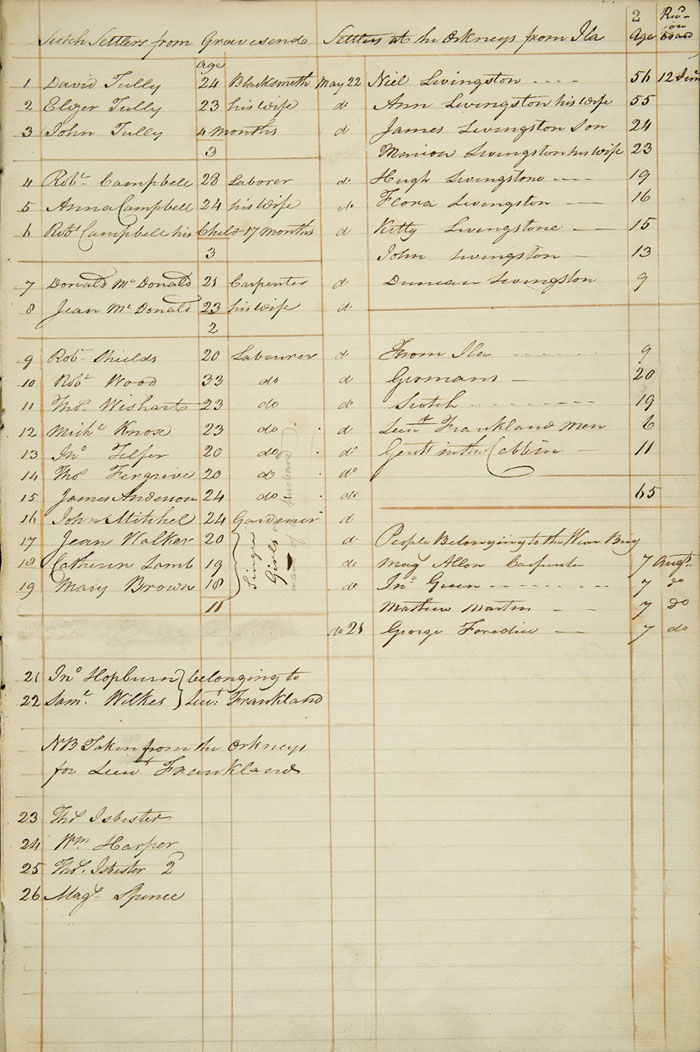 2
Scotch Settlers from Gravesend
age
1 David Tully 24 Blacksmith May 22
2 Elizer Tully 23 his wife do
3 John Tully 4 months do
3
4 Robt. Campbell 28 Laborer do
5 Anna Campbell 24 his wife do
6 Robt Campbell his Child 17 months d
3
7 Donald McDonald 21 Carpenter do
8 Jean McDonald 23 his wife do
2
9 Robt. Shields 20 Labourer do
10 Robt Wood 33 do do
11 Thos. Wishart 23 do do
12 Michl Knox 23 do do
13 Jno. Telfer 20 do do
14 Thos Fergrive 20 do do
15 James Anderson 24 do do
16 John Mitchel 24 Gardener d
17 Jean Walker 20 d
18 Catherin Lamb 19 do
19 Mary Brown 18 do
Single Girls
husband
11
do 21
21 Jno Hopburn } belonging to
22 Saml. Wilkes } Lieut. Frankland
NB Taken from the Orkneys
for Lieut Frankland
23 Thos Isbister
24 Wm Harper
25 Thos. Isbister 2
26 Magt. Spence
Settlers at the Orkneys from Ila Age
board
Niel Livingston 56 12 June
Ann Livingston his wife 55
James Livingston Son 24
Marion Livingston his wife 23
Hugh Livingstone 19
Flora Livingston 16
Kitty Livingstone 15
John Livingston 13
Duncan Livingston 9
From Ila 9
Germans 20
Scotch 19
Lieut Frankland Men 6
Gents in the Cabbin 11
65
People Belonging to the Wear Brig
Magt Allon Carpenter 7 Augt.
Jno Green 7 do
Mathew Martin 7 do
George Foredice 7 do